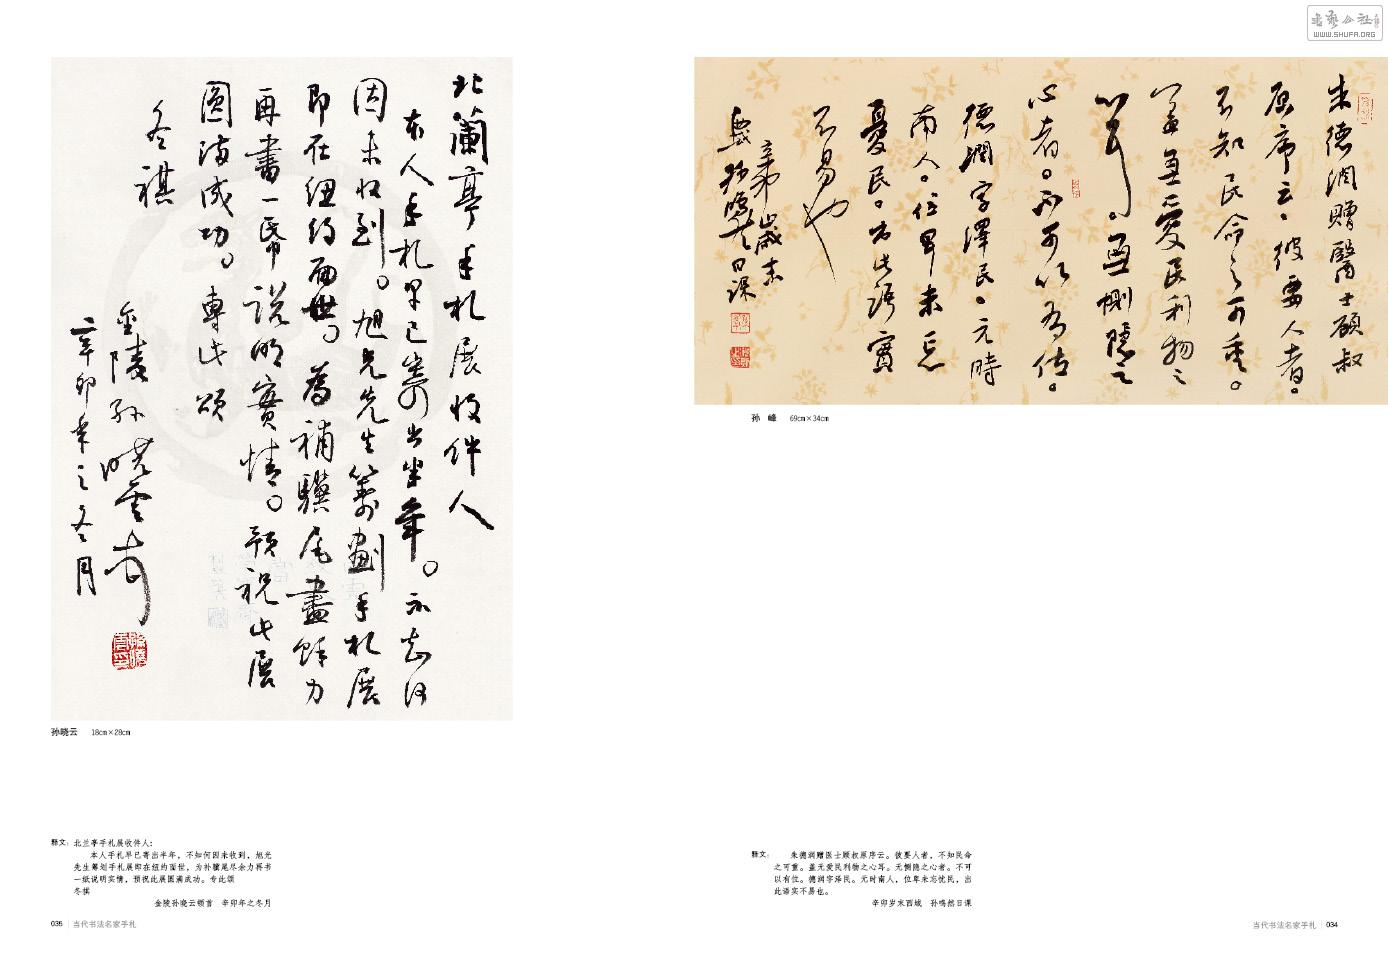 书艺公社
WWW.SHUFA.ORG
北蘭亭手札展收件人
本人手札早已寄出半年。不知何
因未收到。旭光先生筹劃手札展
即在纽约面世。為補驥尾盡餘力
再書一帋說明實情。預祝此展
圓满成功。專此頌
冬祺
金陵孙晓雲頓首
辛卯年之冬月
孙晓云 18cm×28cm
释文:北兰亭手札展收件人:
本人手札早已寄出半年,不知何因未收到,旭光
先生筹划手札展即在纽约面世,为补骥尾尽余力再书
一纸说明实情,预祝此展圆满成功。专此颂
冬祺
金陵孙晓云顿首 辛卯年之冬月
035 当代书法名家手札
朱德润贈醫士顾叔
原序云。彼要人者。
不知民命之可重。
盖無愛民利物之
心耳。無惻隱之
心者。不可以有位。
德潤字澤民。元時
南人。位卑未忘
憂民。出此語實
不易也
辛卯歲末
孙 峰 69cm×34cm
释文: 朱德润赠医士顾叔原序云。彼要人者,不知民命
之可重。盖无爱民利物之心耳。无恻隐之心者。不可
以有位。德润字泽民。元时南人,位卑未忘忧民,出
此语实不易也。
辛卯岁末西域 孙鸣然日课
当代书法名家手札 034